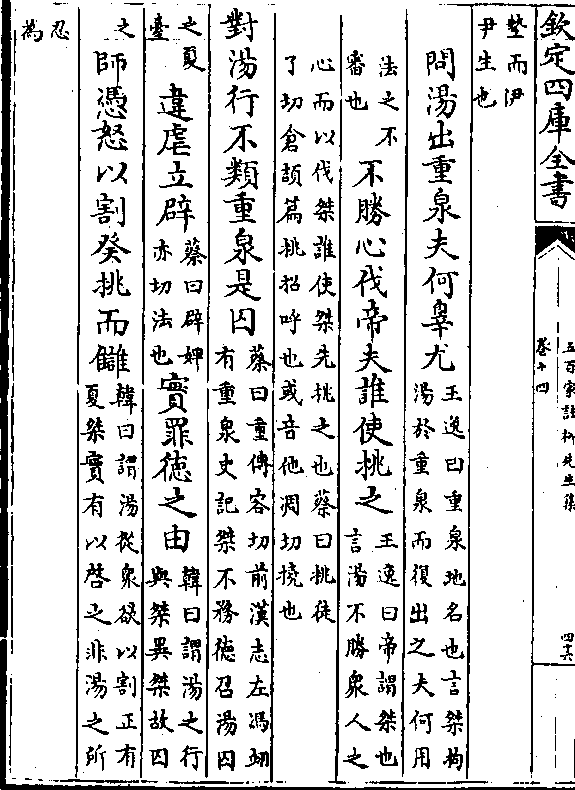 欽定四庫全書
五百家註柳先生集
卷十四
四六
墊而伊
尹生也
問湯出重泉夫何辠尤
王逸曰重泉地名也言桀拘
湯於重泉而復出之夫何用
法之不
審也
不勝心伐帝夫誰使挑之
王逸曰帝謂桀也
言湯不勝衆人之
心而以伐桀誰使桀先挑之也蔡曰挑徒
了切倉頡篇挑招呼也或音他凋切撓也
對湯行不類重泉是囚
蔡曰重傳容切前漢志左馮翊
有重泉史記桀不務德召湯囚
之夏
臺
違虐立辟
蔡曰辟婢
亦切法也
實罪德之由
韓曰謂湯之行
與桀異桀故囚
之
師憑怒以割癸挑而讎
韓曰謂湯從衆欲以割正有
夏桀實有以啓之非湯之所
忍
為